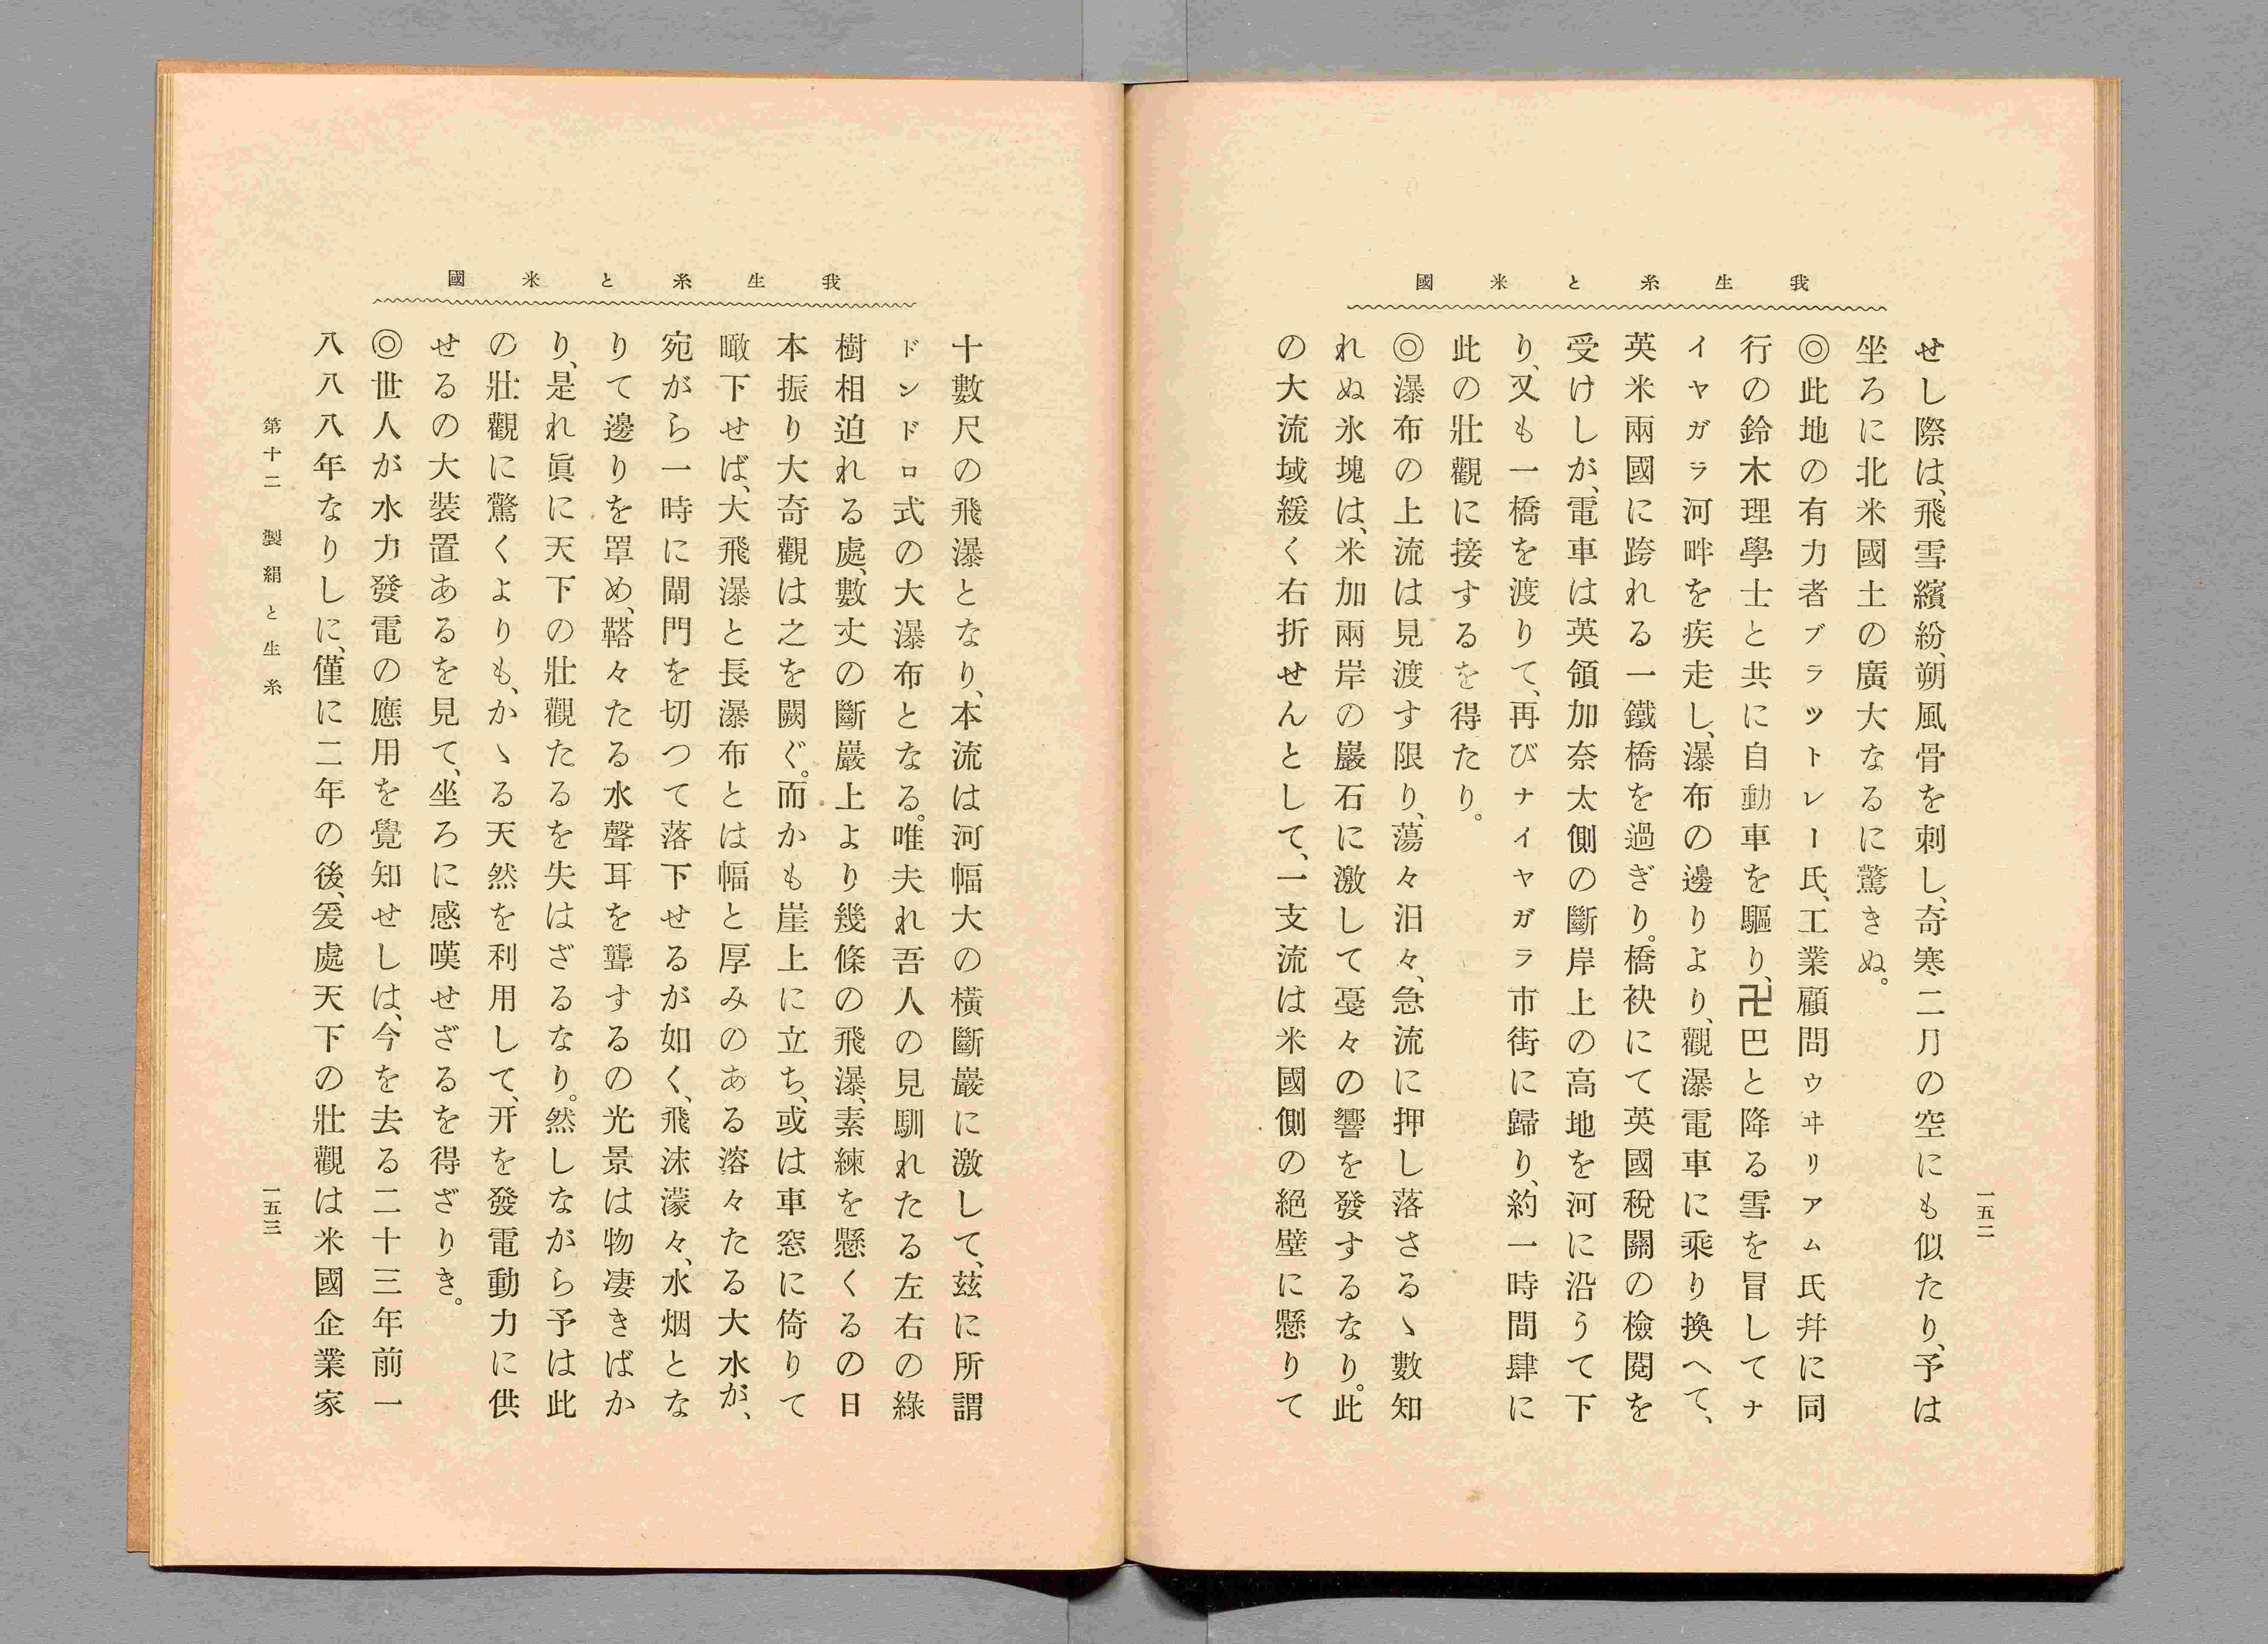 我生糸と米國
せし際は、飛雪繽紛、朔風骨を刺し、奇寒二月の空にも似たり、予は
坐ろに北米國土の廣大なるに驚きぬ。
◎此地の有力者ブラツトレー氏、工業顧問ウヰリアム氏幷に同
行の鈴木理學士と共に自動車を驅り、卍巴と降る雪を冒してナ
イヤガラ河畔を疾走し、瀑布の邊りより、觀瀑電車に乘り換へて、
英米兩國に跨れる一鐵橋を過ぎり。橋袂にて英國稅關の檢閱を
受けしが、電車は英領加奈太側の斷岸上の高地を河に沿うて下
り、又も一橋を渡りて、再びナイヤガラ市街に歸り、約一時間肆に
此の壯觀に接するを得たり。
◎瀑布の上流は見渡す限り、蕩々汨々、急流に押し落さるゝ數知
れぬ氷塊は、米加兩岸の巖石に激して戞々の響を發するなり。此
の大流域緩く右折せんとして、一支流は米國側の絕壁に懸りて
一五二
我生糸と米國
十數尺の飛瀑となり、本流は河幅大の橫斷巖に激して、玆に所謂
ドンドロ式の大瀑布となる。唯夫れ吾人の見馴れたる左右の綠
樹相迫れる處、數丈の斷巖上より幾條の飛瀑、素練を懸くるの日
本振り大奇觀は之を闕ぐ。而かも崖上に立ち、或は車窓に倚りて
瞰下せば、大飛瀑と長瀑布とは幅と厚みのある溶々たる大水が、
宛がら一時に閘門を切つて落下せるが如く、飛沫濛々、水烟とな
りて邊りを罩め、鞳々たる水聲耳を聾するの光景は物凄きばか
り、是れ眞に天下の壯觀たるを失はざるなり。然しながら予は此
の壯觀に驚くよりも、かゝる天然を利用して、幵を發電動力に供
せるの大裝置あるを見て、坐ろに感嘆せざるを得ざりき。
◎世人が水力發電の應用を覺知せしは、今を去る二十三年前一
八八八年なりしに、僅に二年の後、爰處天下の壯觀は米國企業家
第十二 製絹と生糸
一五三